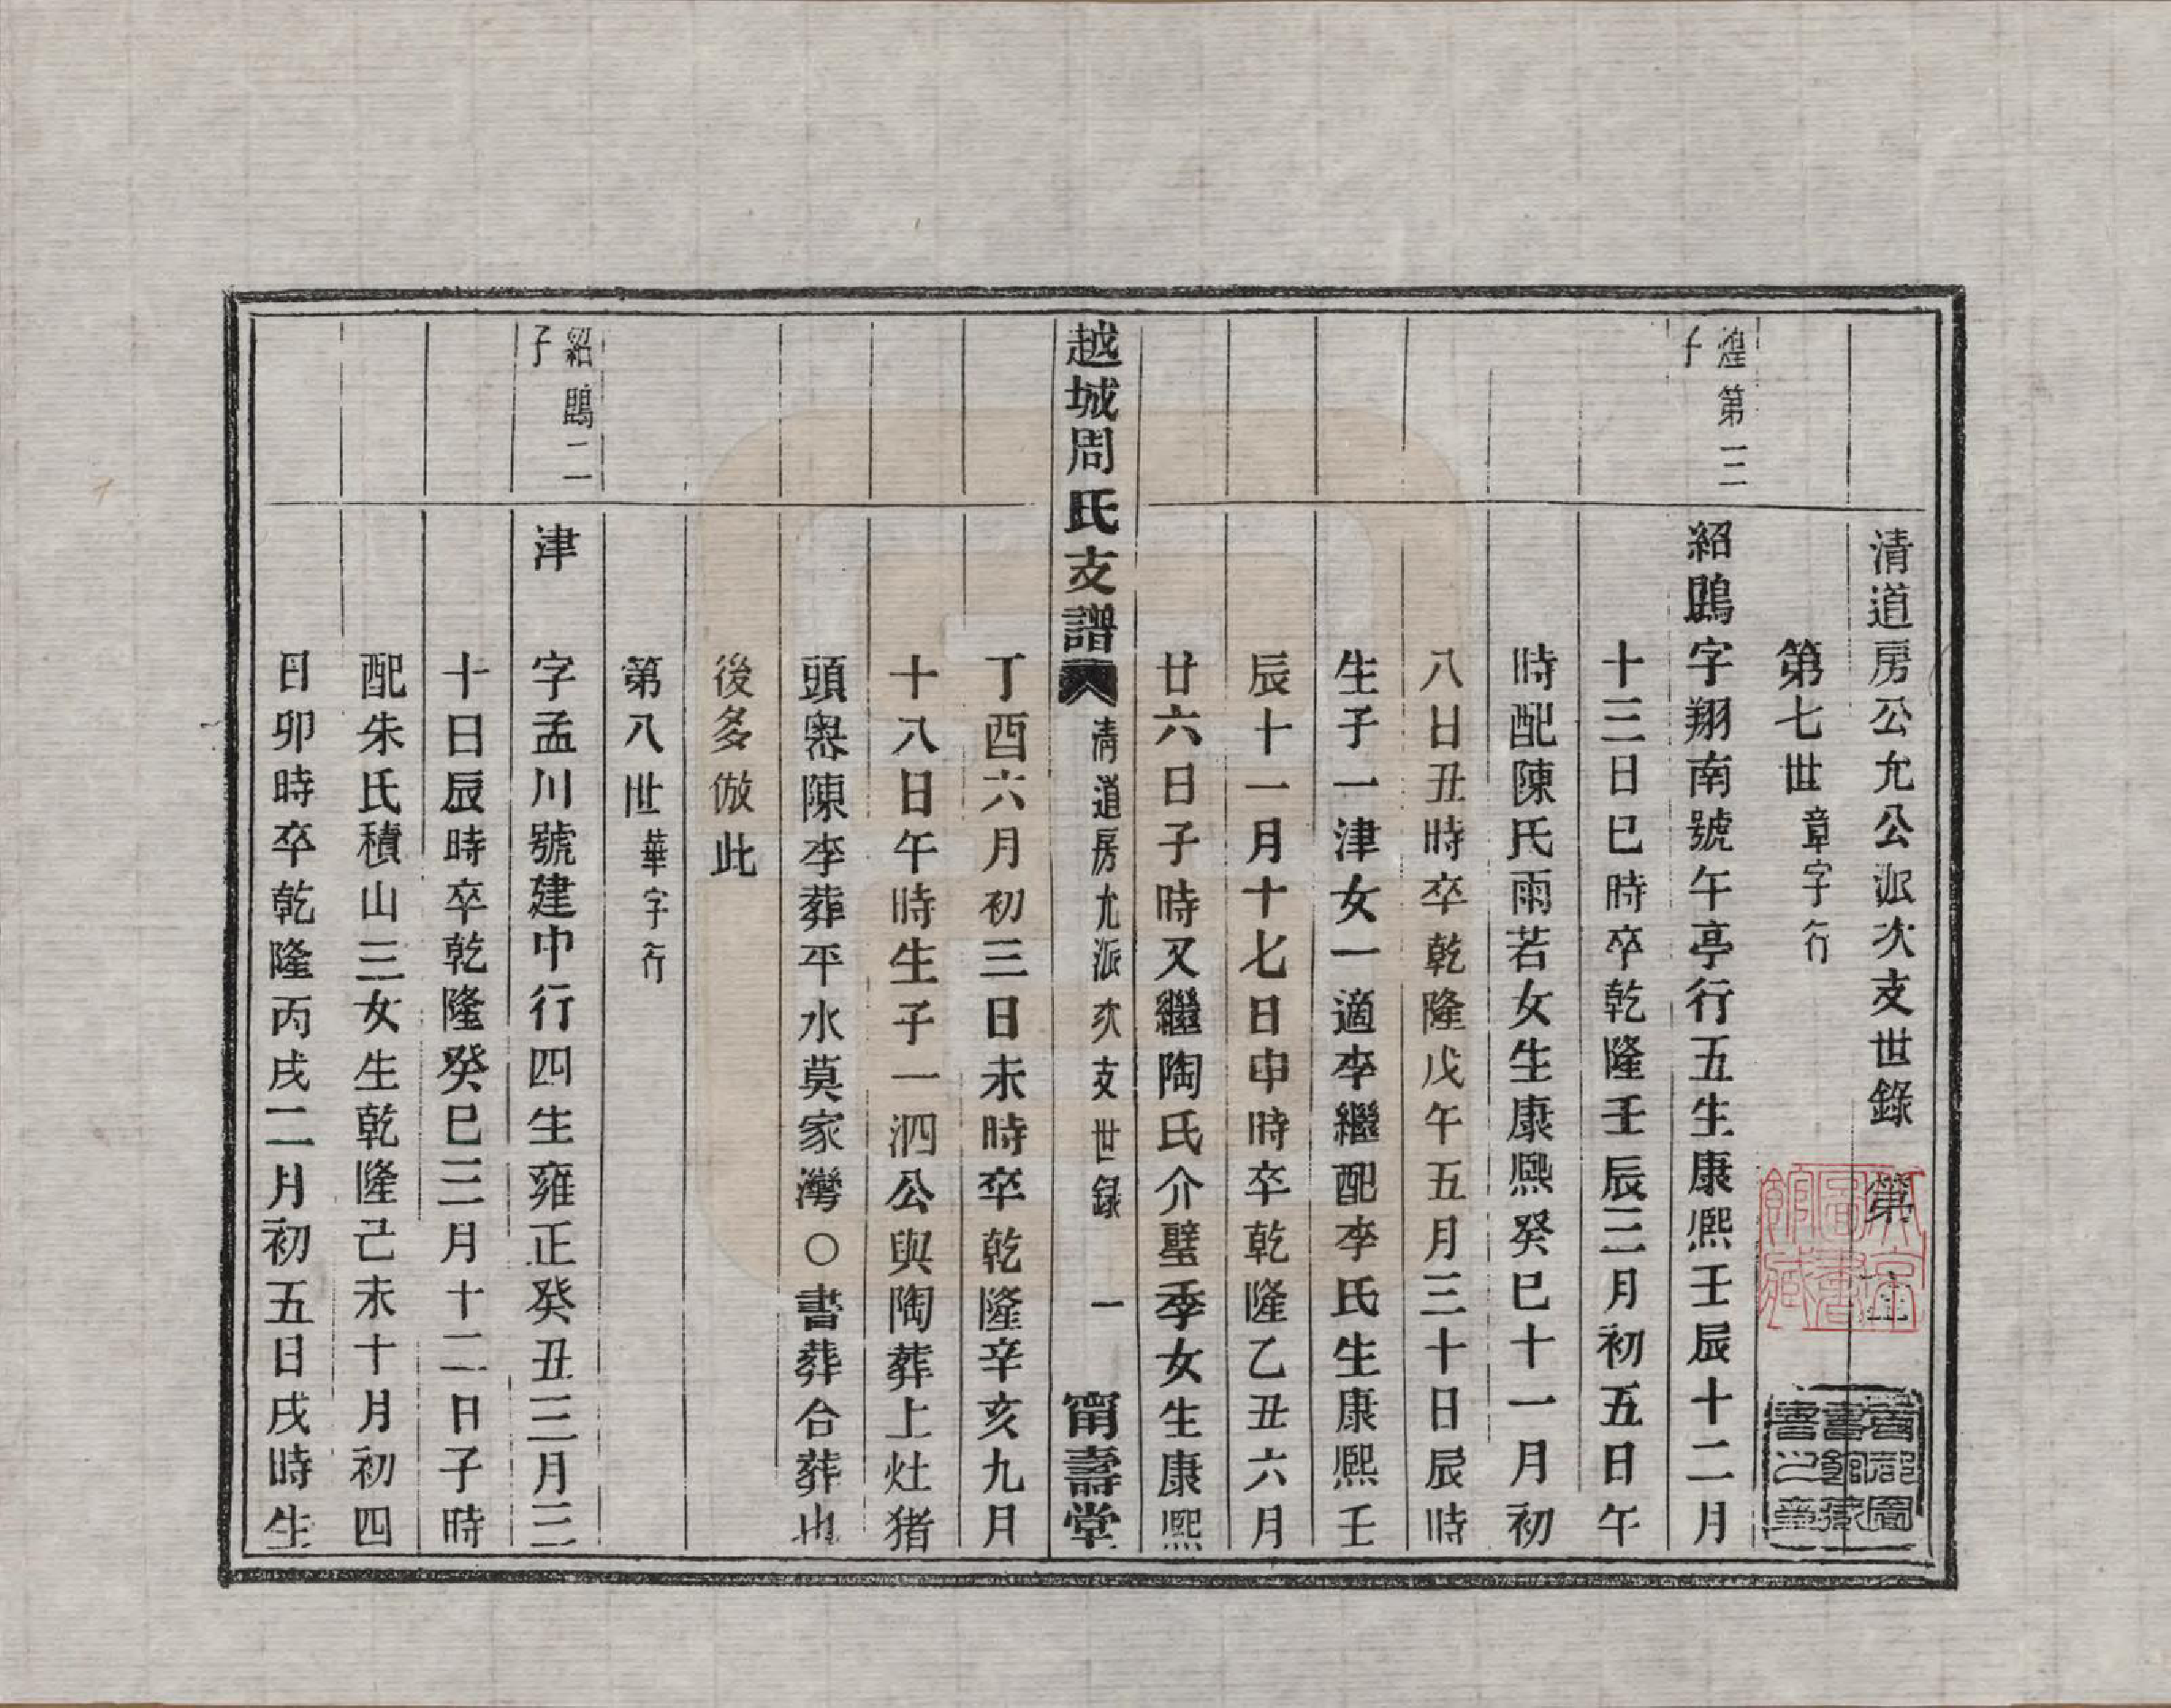 清道房公允公派次支世錄 第
第七世 章字行
煌第三子
紹鵾字翔南號午亭行五生康熙壬辰十二月
十三日巳時卒乾隆壬辰三月初五日午
時配陳氏雨若女生康熙癸巳十一月初
八日丑時卒乾隆戊午五月三十日辰時
生子一津女一適李繼配李氏生康熙壬
辰十一月十七日申時卒乾隆乙丑六月
廿六日子時又繼陶氏介璧季女生康熙
越城周氏支譜 清道房允派次支世録 一 甯壽堂
丁酉六月初三日未時卒乾隆辛亥九月
十八日午時生子一泗公與陶葬上灶猪
頭嶴陳李葬平水莫家灣○書葬合葬也
後多倣此
第八世 華字行
紹鵾二子
津 字孟川號建中行四生雍正癸丑三月三
十日辰時卒乾隆癸巳三月十二日子時
配朱氏積山三女生乾隆己未十月初四
日卯時卒乾隆丙戌二月初五日戌時生